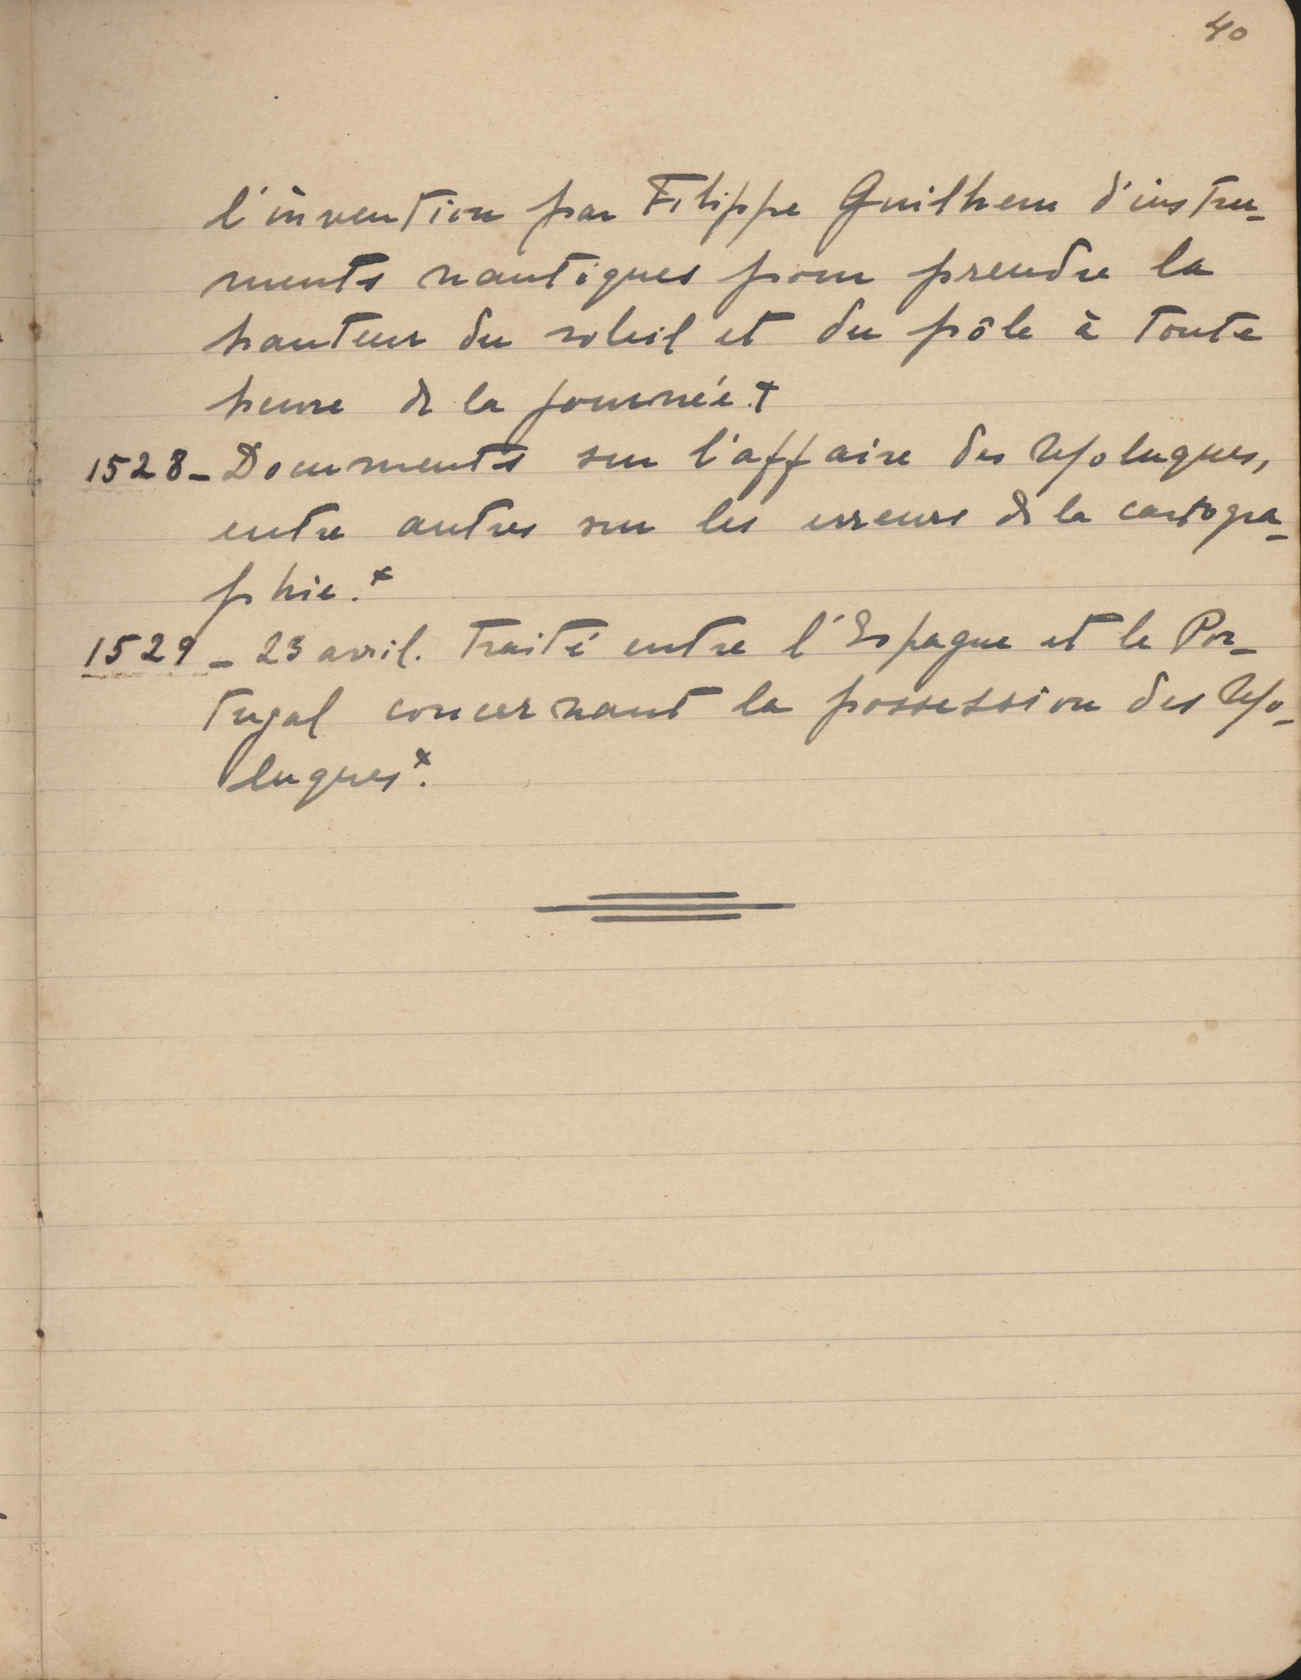 40
l'invention par Filippe Guilhem d'instru-
ments nautiques pour prendre la
hauteur du soleil et du pôle à toute
heure de la journée.+
1528- Documents sur l'affaire des Moluques,
entre autres sur les erreurs de la cartogra-
phie.x
1529- 23 avril. Traité entre l'Espagne et le Por-
tugal concernant la possession des Mo-
luques x.